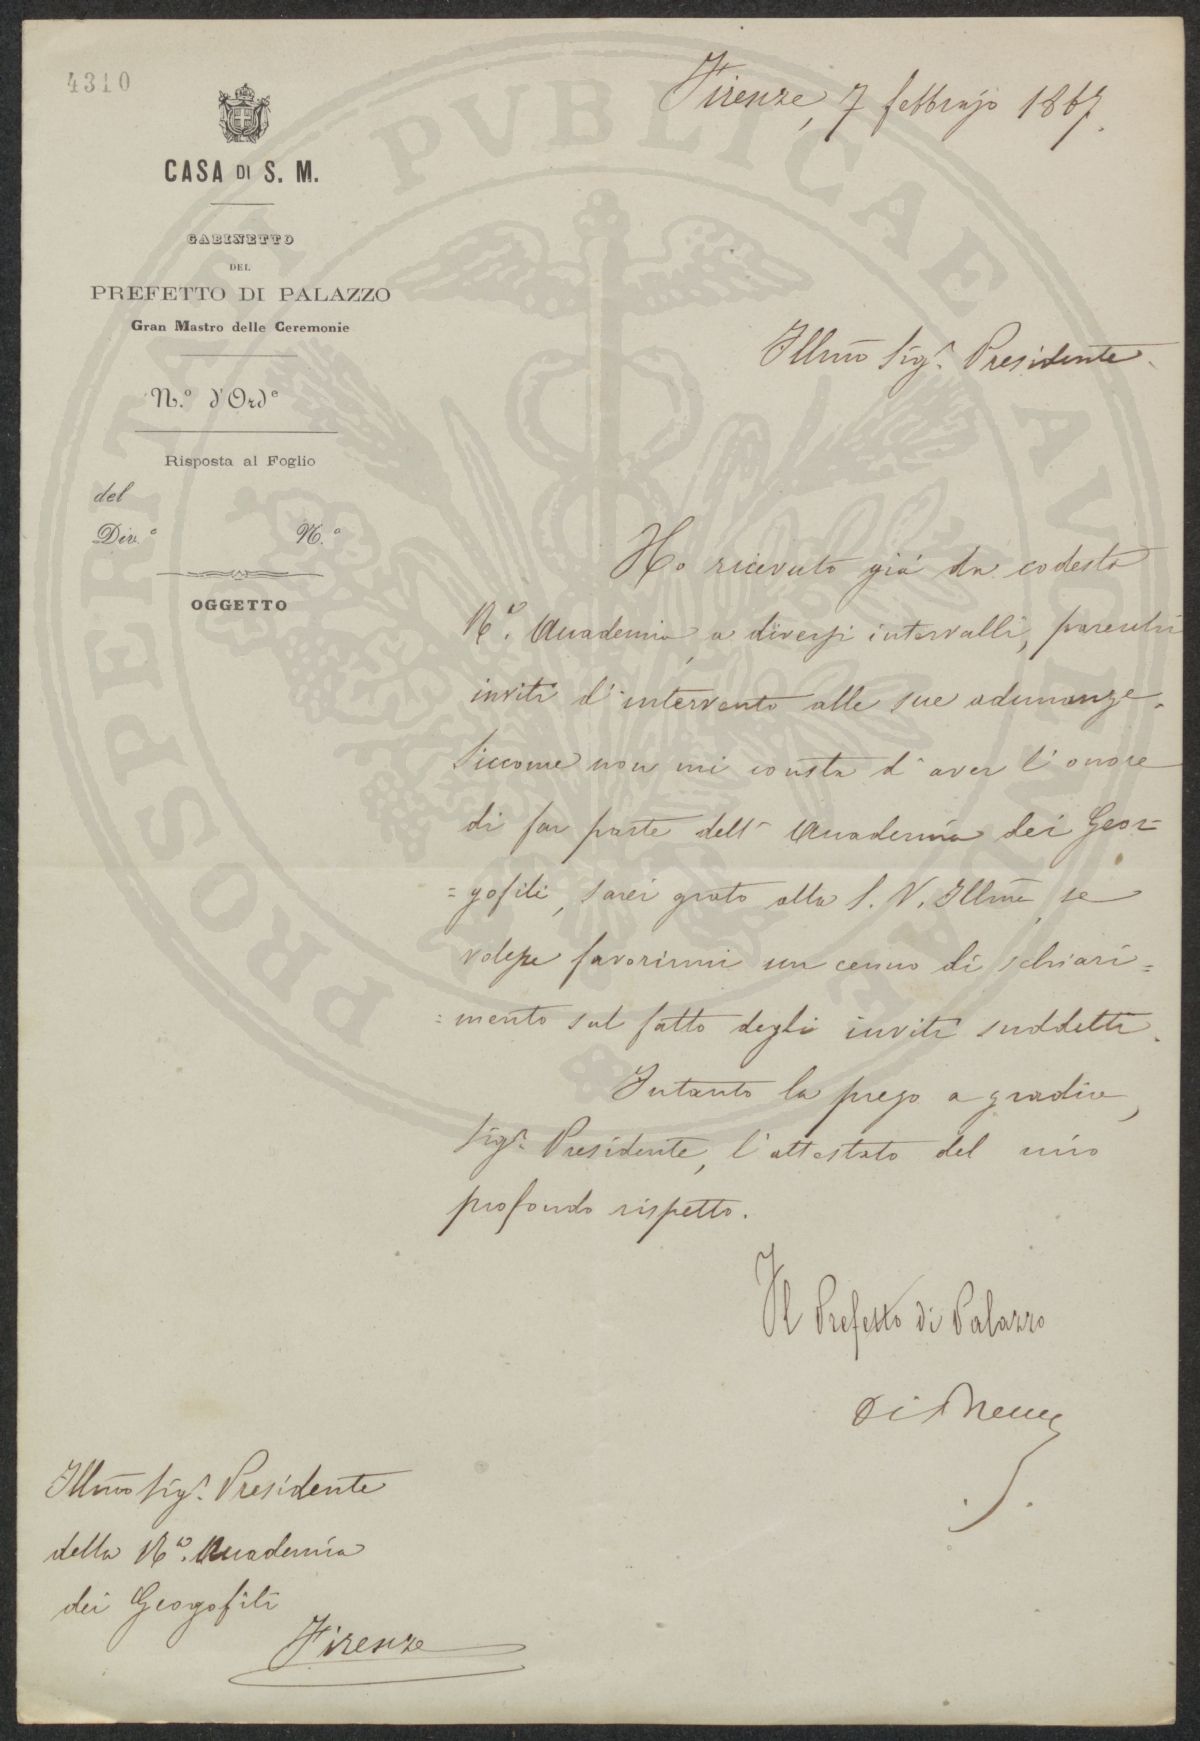 4310
CASA DI S. M.
GABINETTO
DEL
PREFETTO DI PALAZZO
Gran Mastro delle Ceremonie
N.° d'Ord.e
Risposta al Foglio
del
Div.e N.°
OGGETTO
Firenze, 7 febbrajo 1867.
Illmo Sigr. Presidente.
Ho ricevuto già da codesta
Ra. Accademia, a diversi intervalli, parecchi
inviti d'intervento alle sue adunanze.
Siccome non mi consta d'aver l'onore
di far parte dell'Accademia dei Geor=
=gofili, sarei grato alla S. V. Illma, se
volesse favorirmi un cenno di schiari=
=mento sul fatto degli inviti suddetti.
Intanto la prego a gradire,
Sigr. Presidente, l'attestato del mio
profondo rispetto.
Il Prefetto di Palazzo
Di
Illmo Sigr. Presidente
della Ra. Accademia
dei Georgofili
Firenze
PROSPERITATI PVBLICAE AVGENDAE